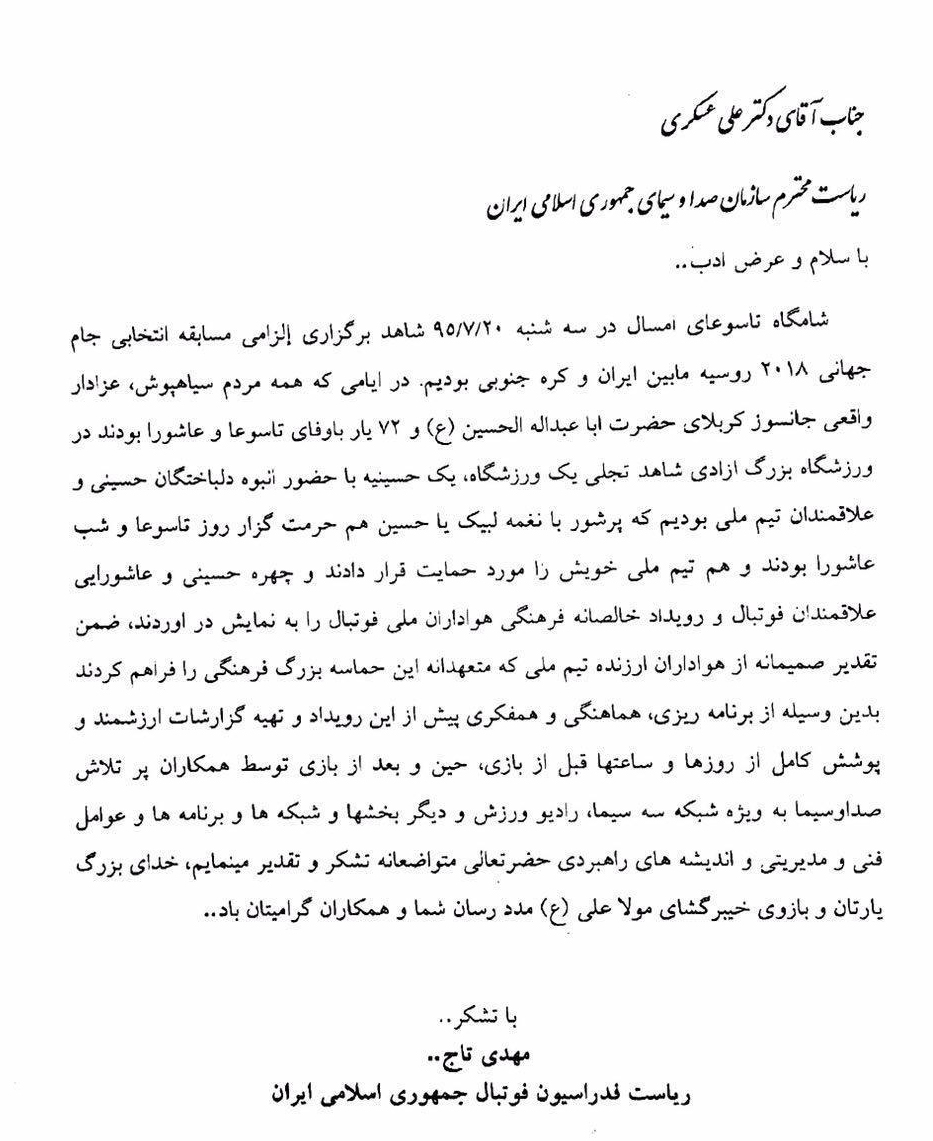 جناب آقای دکتر علی عسکری
ریاست محترم سازمان صدا و سیمای جمهوری اسلامی ایران
با سلام و عرض ادب..
شامگاه تاسوعای امسال در سه شنبه ۹۵/۷/۲۰ شاهد برگزاری إلزامی مسابقه انتخابی جام
جهانی ۲۰۱۸ روسیه مابین ایران و کره جنوبی بودیم. در ایامی که همه مردم سیاهپوش، عزادار
واقعی جانسوز کربلای حضرت ابا عبداله الحسین (ع) و ۷۲ یار باوفای تاسوعا و عاشورا بودند در
ورزشگاه بزرگ ازادی شاهد تجلی یک ورزشگاه، یک حسینیه با حضور انبوه دلباختگان حسینی و
علاقمندان تیم ملی بودیم که پرشور با نغمه لبیک یا حسین هم حرمت گزار روز تاسوعا و شب
عاشورا بودند و هم تیم ملی خویش را مورد حمایت قرار دادند و چهره حسینی و عاشورایی
علاقمندان فوتبال و رویداد خالصانه فرهنگی هواداران ملی فوتبال را به نمایش در اوردند، ضمن
تقدیر صمیمانه از هواداران ارزنده تیم ملی که متعهدانه این حماسه بزرگ فرهنگی را فراهم کردند
بدین وسیله از برنامه ریزی، هماهنگی و همفکری پیش از این رویداد و تهیه گزارشات ارزشمند و
پوشش کامل از روزها و ساعتها قبل از بازی، حین و بعد از بازی توسط همکاران پر تلاش
صداوسیما به ویژه شبکه سه سیما، رادیو ورزش و دیگر بخشها و شبکه ها و برنامه ها و عوامل
فنی و مدیریتی و اندیشه های راهبردی حضرتعالی متواضعانه تشکر و تقدیر مینمایم، خدای بزرگ
یارتان و بازوی خیبرگشای مولا علی (ع) مدد رسان شما و همکاران گرامیتان باد..
با تشکر..
مهدی تاج..
ریاست فدراسیون فوتبال جمهوری اسلامی ایران